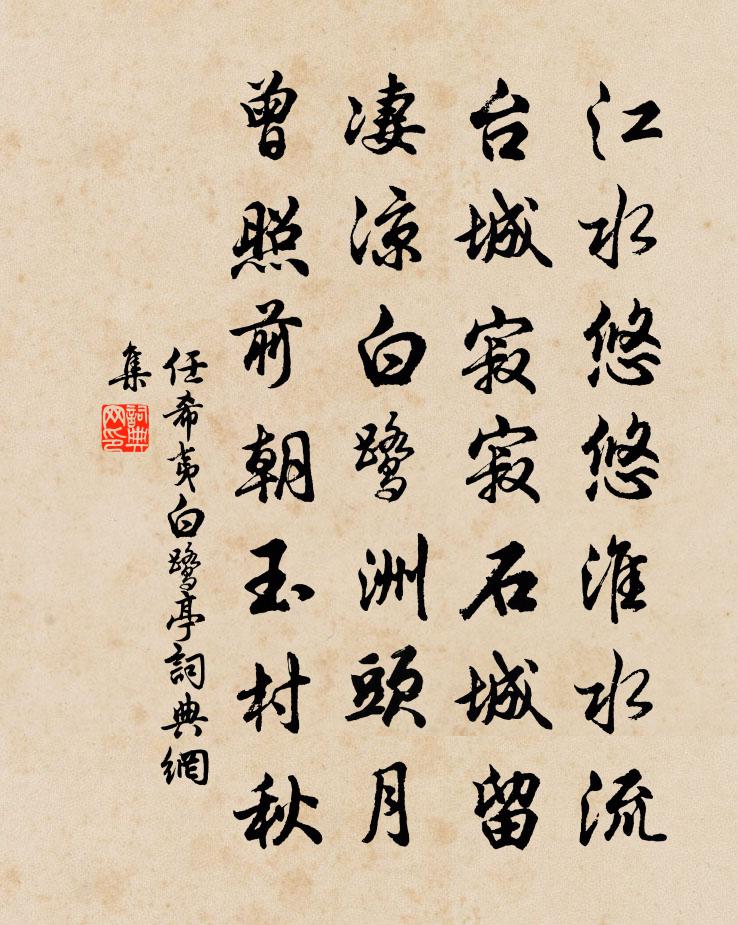 江水悠悠淮水流
台城寂寂石城留
凄凉白鹭洲頭月
曾照前朝玉树秋
任希夷白鹭亭詞典網
集
詞典
网印